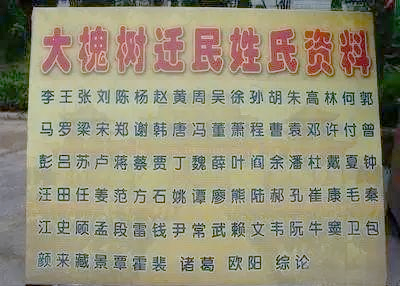 大槐树迁民姓氏资料
李王张刘陈杨赵黄周吴徐孙胡朱高林何郭
马罗梁宋郑谢韩唐冯董萧程曹袁邓许付曾
彭吕苏卢蒋蔡贾丁魏薛叶阎余潘杜戴夏钟
汪田任姜范方石姚谭廖熊陆郝孔崔康毛秦
江史顾孟段雷钱尹常武赖文韦阮牛窦卫包
颜来臧景覃霍裴 诸葛 欧阳 综论